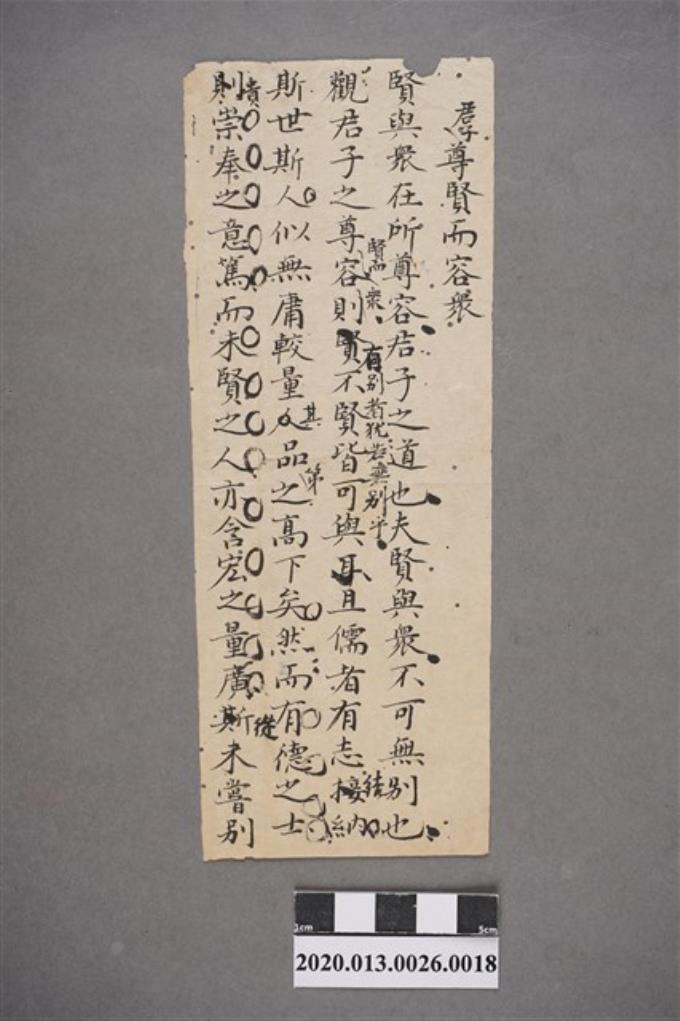 君子尊賢而容衆
賢與衆在所尊容君子之道也夫賢與衆不可無別也
賢而衆有別者猶若無別乎
觀君子之尊容則賢不賢皆可與耳且儒者有志接納
結
斯世斯人似無庸較量人品之高下矣然而有德之士
其第
則崇奉之意篤而未賢之人亦含宏之量廣斯未嘗別
貴從
1cm 5cm
2020.013.0026.0018